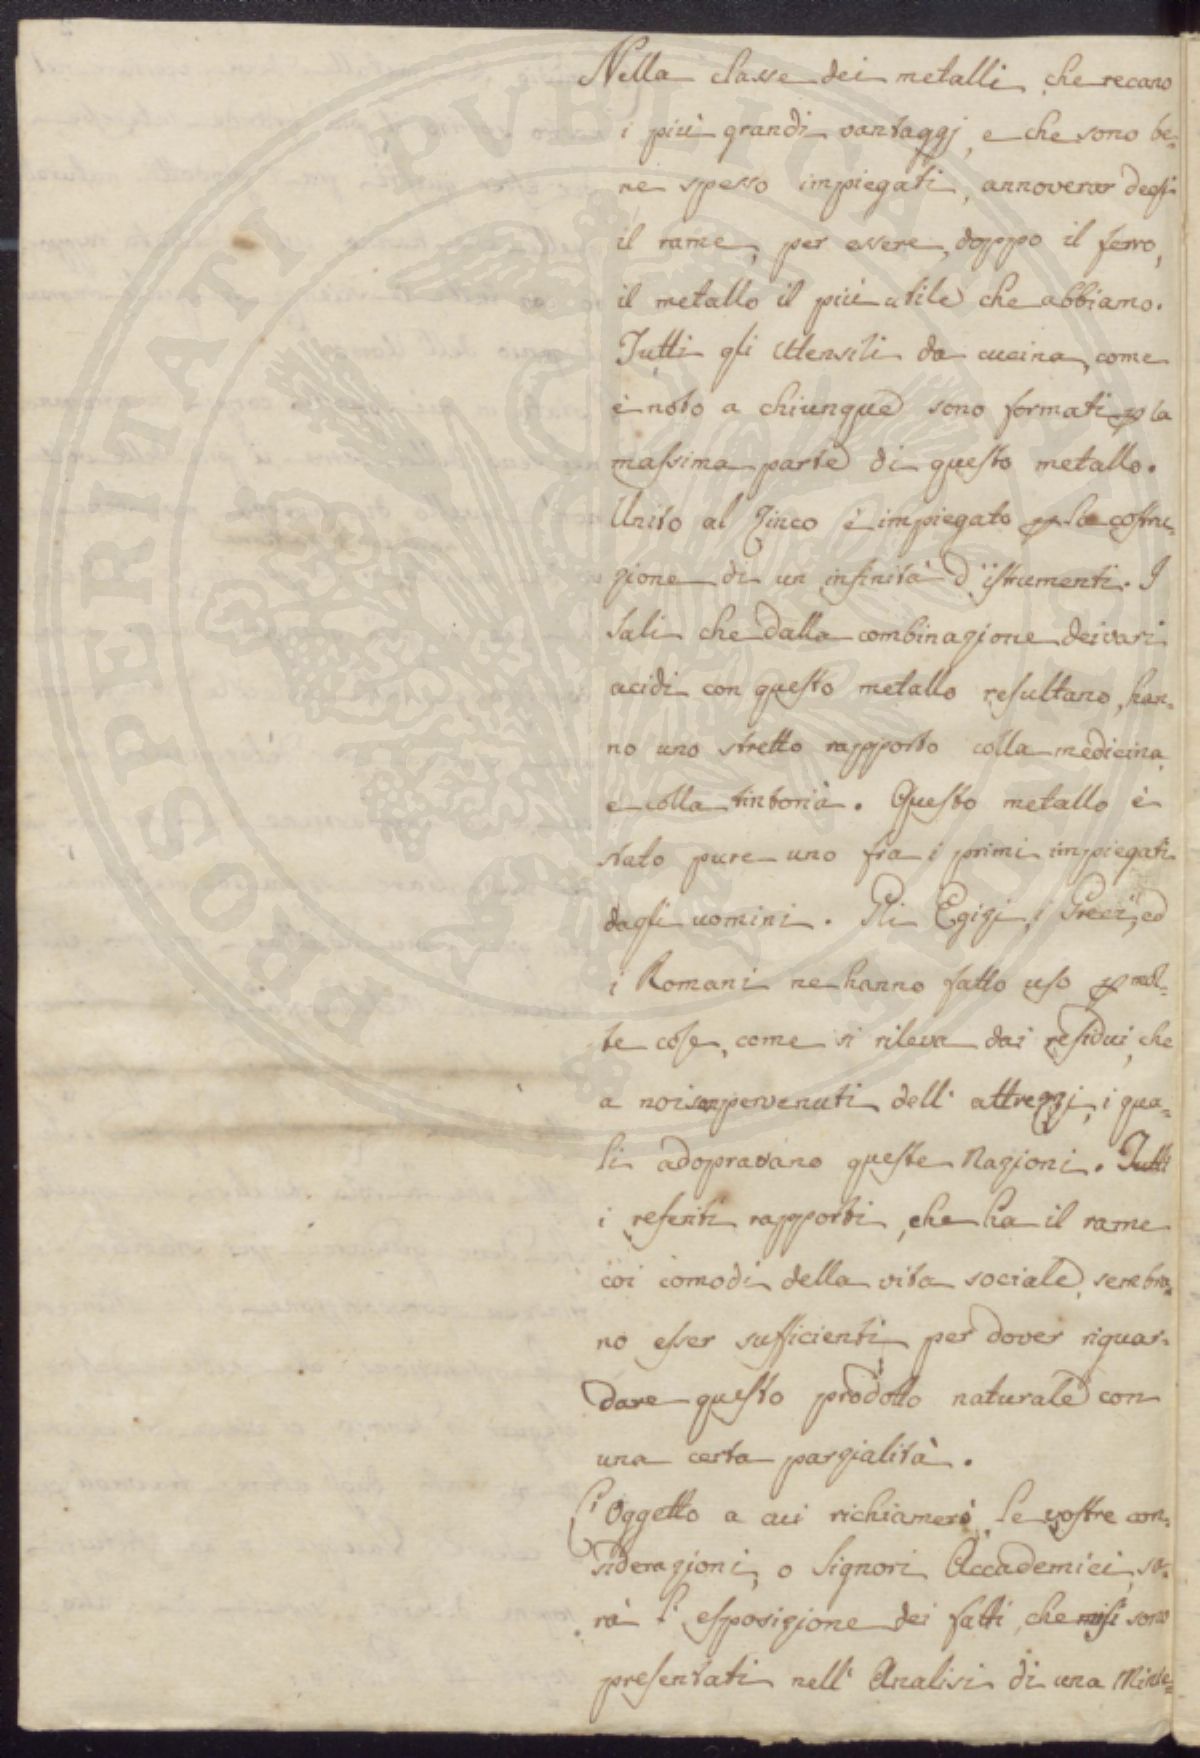 Nella classe dei metalli, che recano
i più grandi vantaggj, e che sono be=
ne spesso impiegati, annoverar degsi
il rame, per essere, doppo il ferro,
il metallo il più utile che abbiamo.
Tutti gli Utensili da cucina, come
è noto a chiunque sono formati p la
massima parte di questo metallo.
Unito al Zinco è impiegato p la costru=
zione di un infinità d'istrumenti. I
Sali che dalla combinazione dei vari
acidi con questo metallo resultano, han=
no uno stretto rapporto colla medicina,
e colla tintoria. Questo metallo è
stato pure uno fra i primi impiegati
dagli uomini. Gli Egizj, i Greci, ed
i Romani ne hanno fatto uso p mol=
te cose, come si rileva dai residui, che
a noi pervenuti dell' attrezzj, i qua=
li adopravano queste Nazioni. Tutti
i referiti rapporti, che ha il rame
coi comodi della vita sociale, sembra=
no esser sufficienti per dover riguar=
dare questo prodotto naturale con
una certa parzialità.
L'Oggetto a cui richiamerò le vostre con=
siderazioni, o Signori Accademici, sa=
rà l'esposizione dei fatti, che misi sono
presentati nell' Analisi di una Mine=
PROSPERITATI PVBLICAE